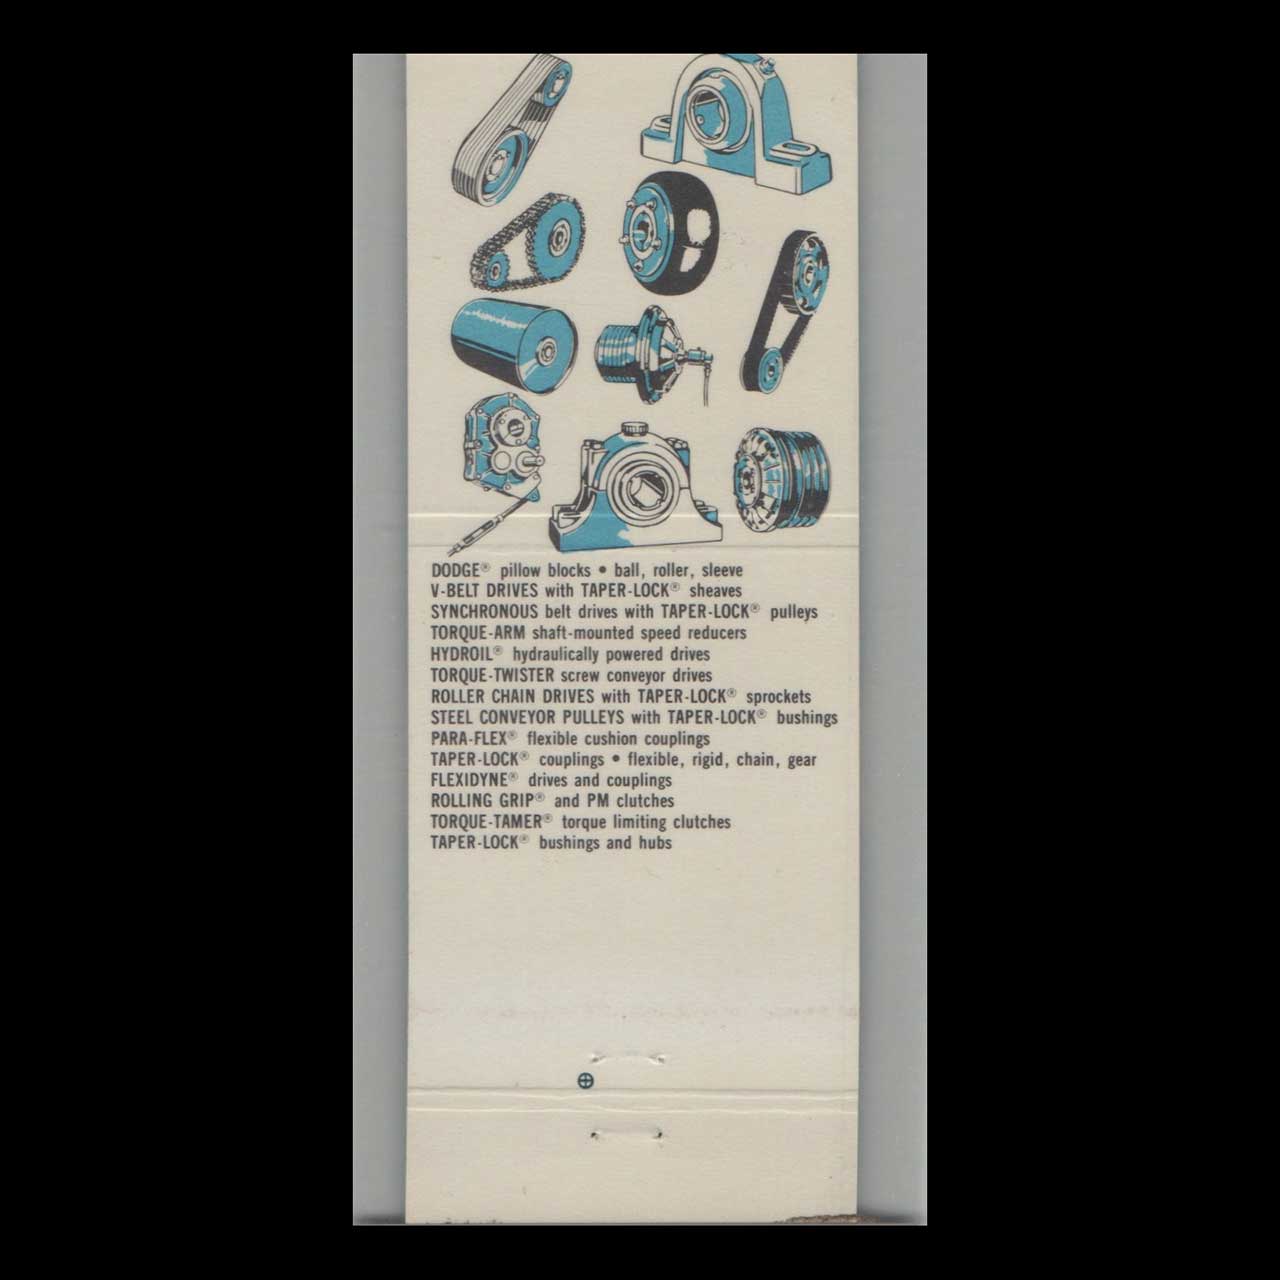 DODGE® pillow blocks • ball, roller, sleeve
V-BELT DRIVES with TAPER-LOCK® sheaves
SYNCHRONOUS belt drives with TAPER-LOCK® pulleys
TORQUE-ARM shaft-mounted speed reducers
HYDROIL® hydraulically powered drives
TORQUE-TWISTER screw conveyor drives
ROLLER CHAIN DRIVES with TAPER-LOCK® sprockets
STEEL CONVEYOR PULLEYS with TAPER-LOCK® bushings
PARA-FLEX® flexible cushion couplings
TAPER-LOCK® couplings • flexible, rigid, chain, gear
FLEXIDYNE® drives and couplings
ROLLING GRIP® and PM clutches
TORQUE-TAMER® torque limiting clutches
TAPER-LOCK® bushings and hubs